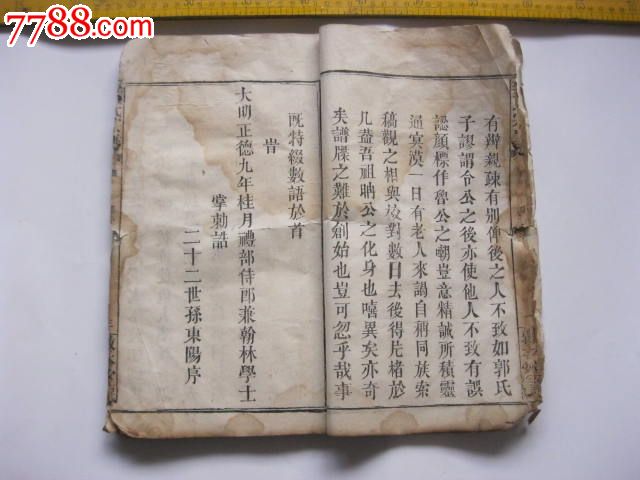 7788.com
有辨親疎有別俾後之人不致如郭氏
子謬謂令公之後亦使他人不致有誤
認顔標作魯公之嘲豈意精誠所積靈
通寞漠一日有老人來謁自稱同族索
稿觀之相與校對數日去後得片楮於
几葢吾祖昞公之化身也嘻異矣亦奇
矣譜牒之難於創始也豈可忽乎哉事
既特綴數語於首
旹
大明正德九年桂月禮部侍郎兼翰林學士
掌勅誥
二十二世孫東陽序